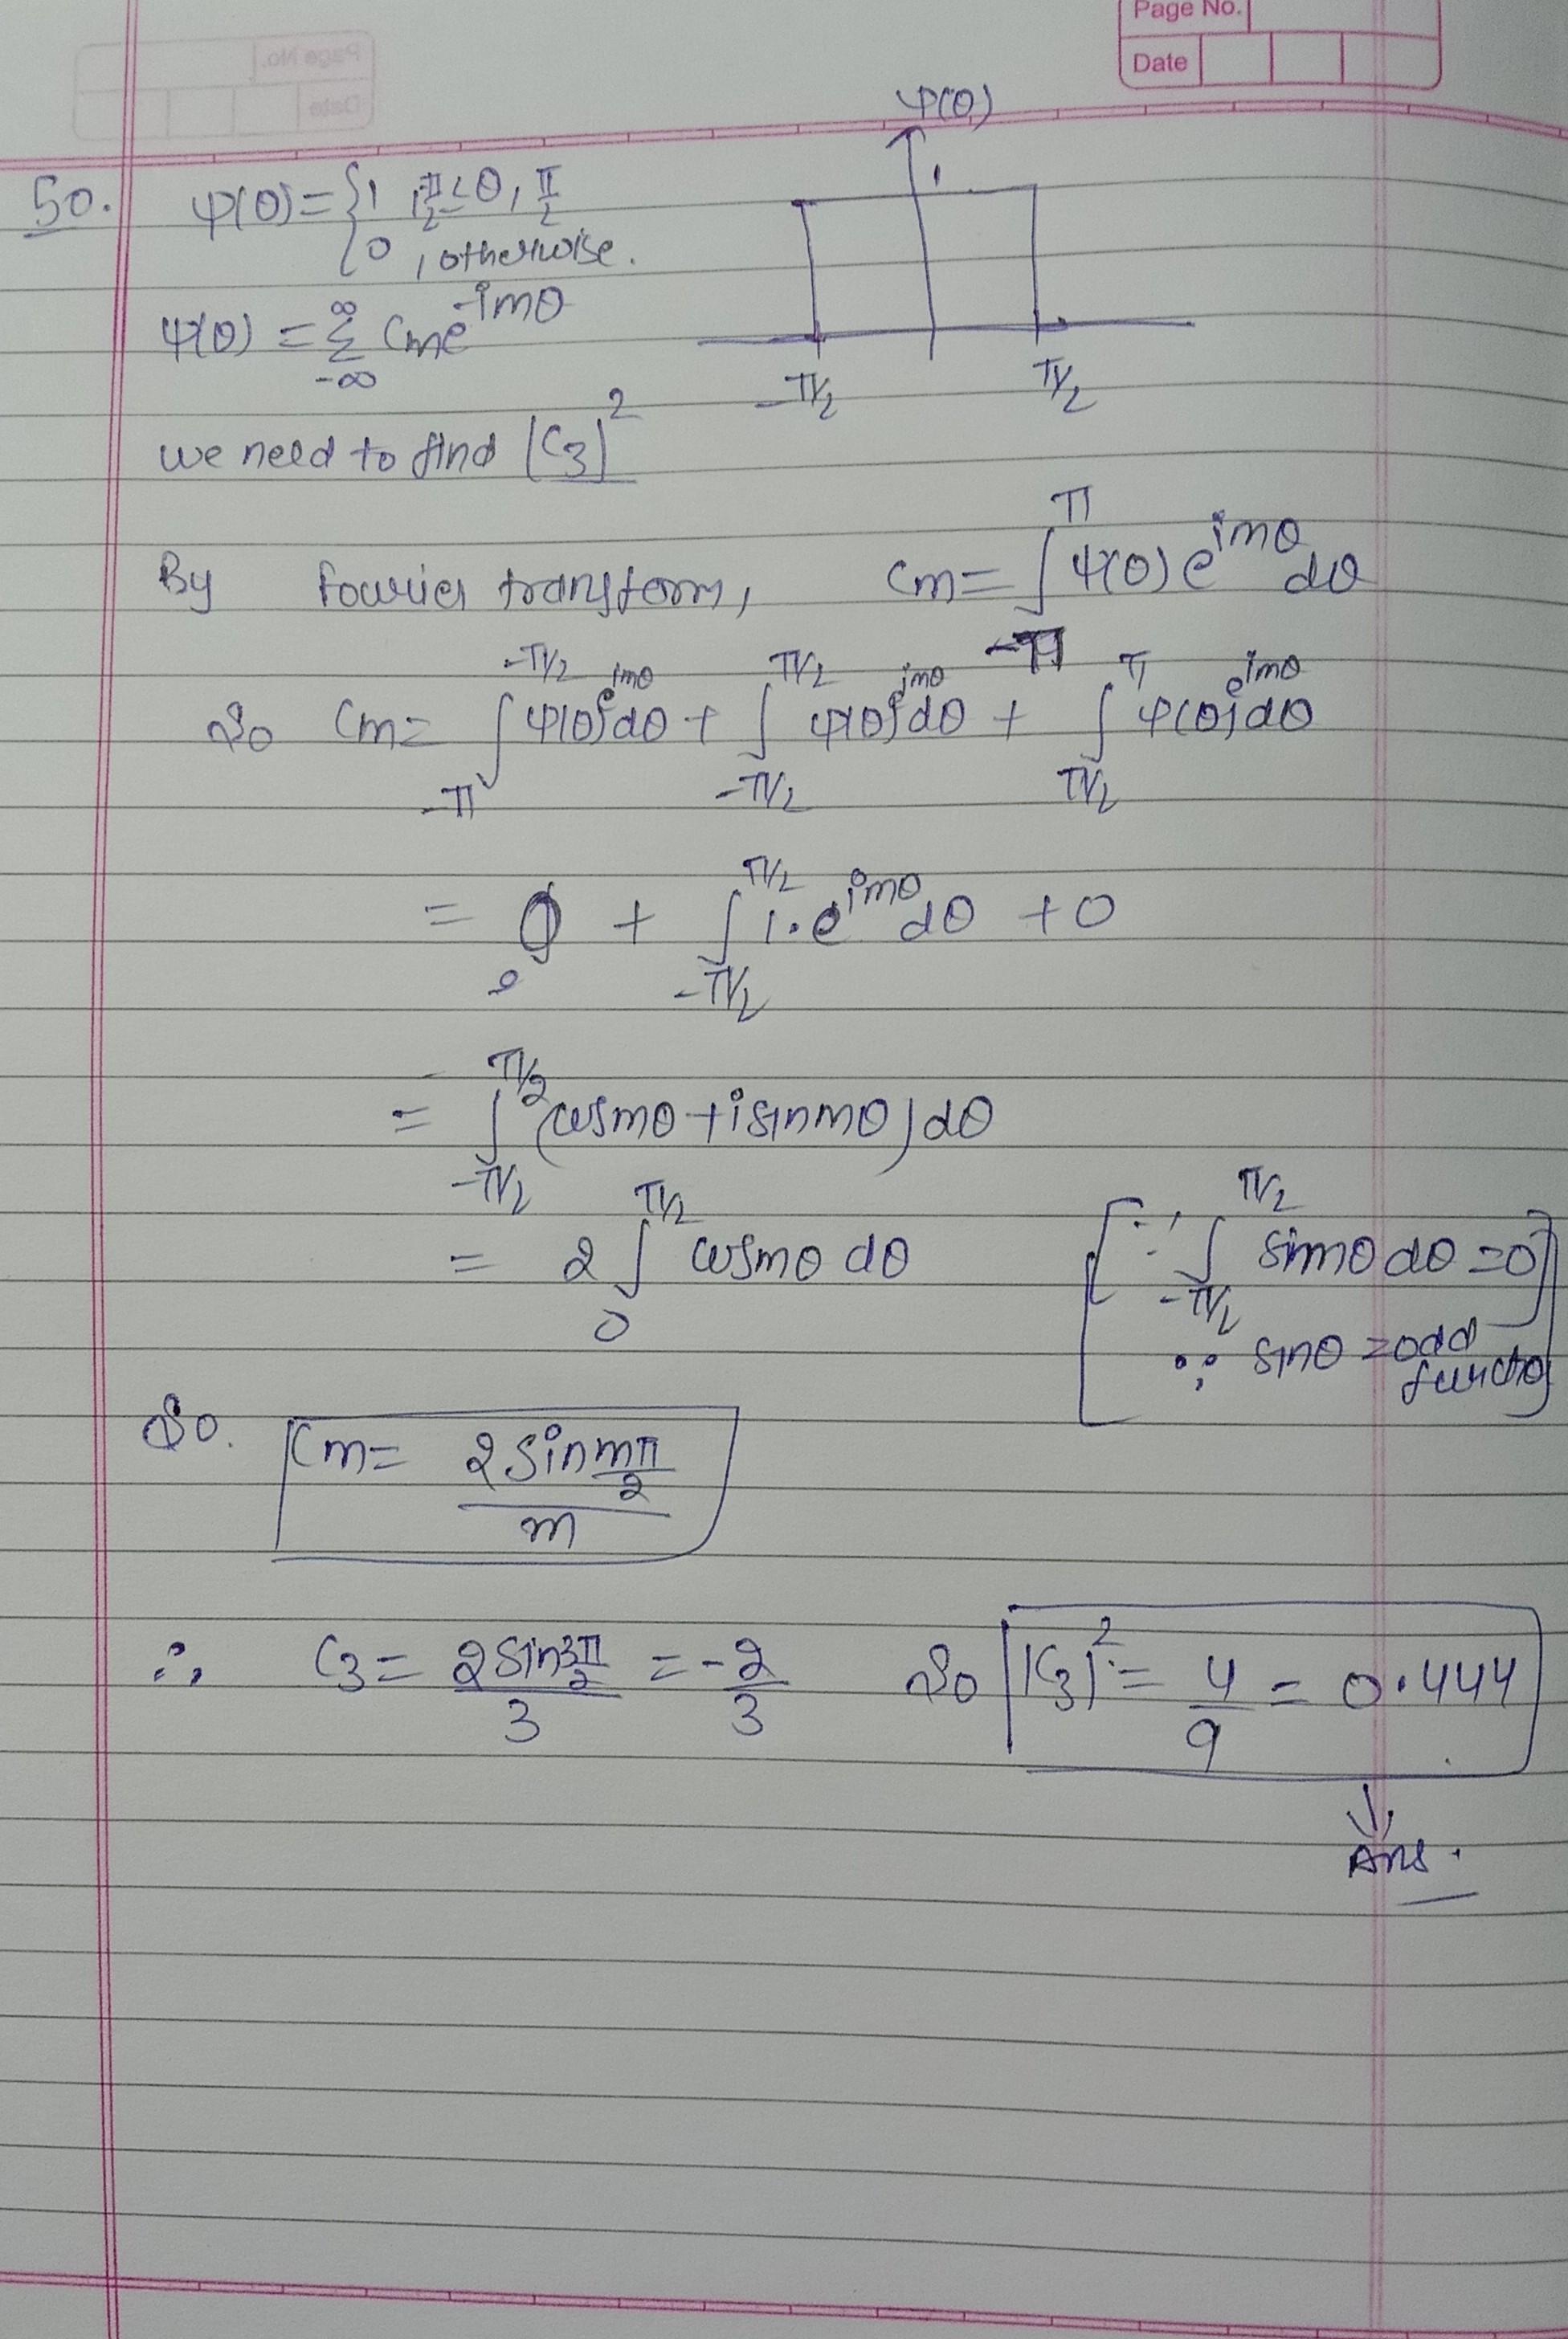 Page No.
Date
ψ(θ)
50. ψ(θ) = { 1 , π/2 ≤ θ, π/2
0 , otherwise.
1
ψ(θ) = Σ Cm e^-imθ
∞
-∞
-π/2 π/2
we need to find |C3|²
By Fourier transform, Cm = ∫_-π^π ψ(θ) e^imθ dθ
So Cm = ∫_-π^-π/2 ψ(θ) e^imθ dθ + ∫_-π/2^π/2 ψ(θ) e^imθ dθ + ∫_π/2^π ψ(θ) e^imθ dθ
= 0 + ∫_-π/2^π/2 1·e^imθ dθ + 0
= ∫_-π/2^π/2 (cosmθ + i sinmθ) dθ
= 2 ∫_0^π/2 cosmθ dθ [∵ ∫_-π/2^π/2 sinmθ dθ = 0]
∵ sinθ = odd
So. Cm = 2 sin mπ/2 / m
∴ C3 = 2 sin 3π/2 / 3 = -2/3 So |C3|² = 4/9 = 0.444
Ans.